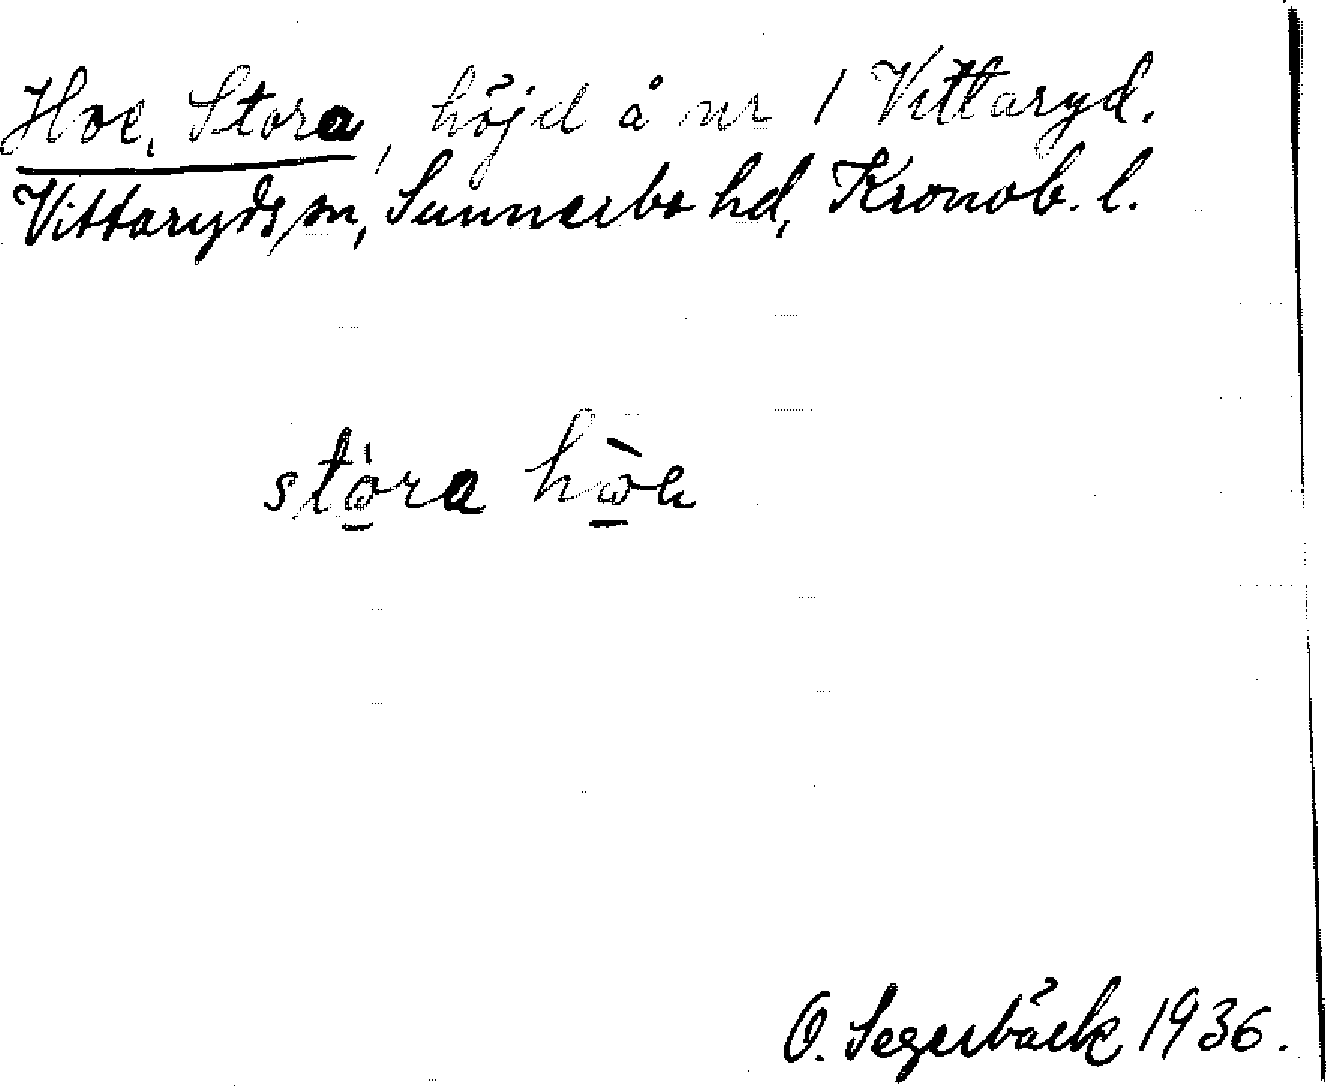 Hoe, Stora, höjd å nr 1 Vittaryd.
Vittaryds sn, Sunnerbo hd, Kronob. l.
stⱺ̀ra hⱺ̀e
O. Segerbäck 1936.